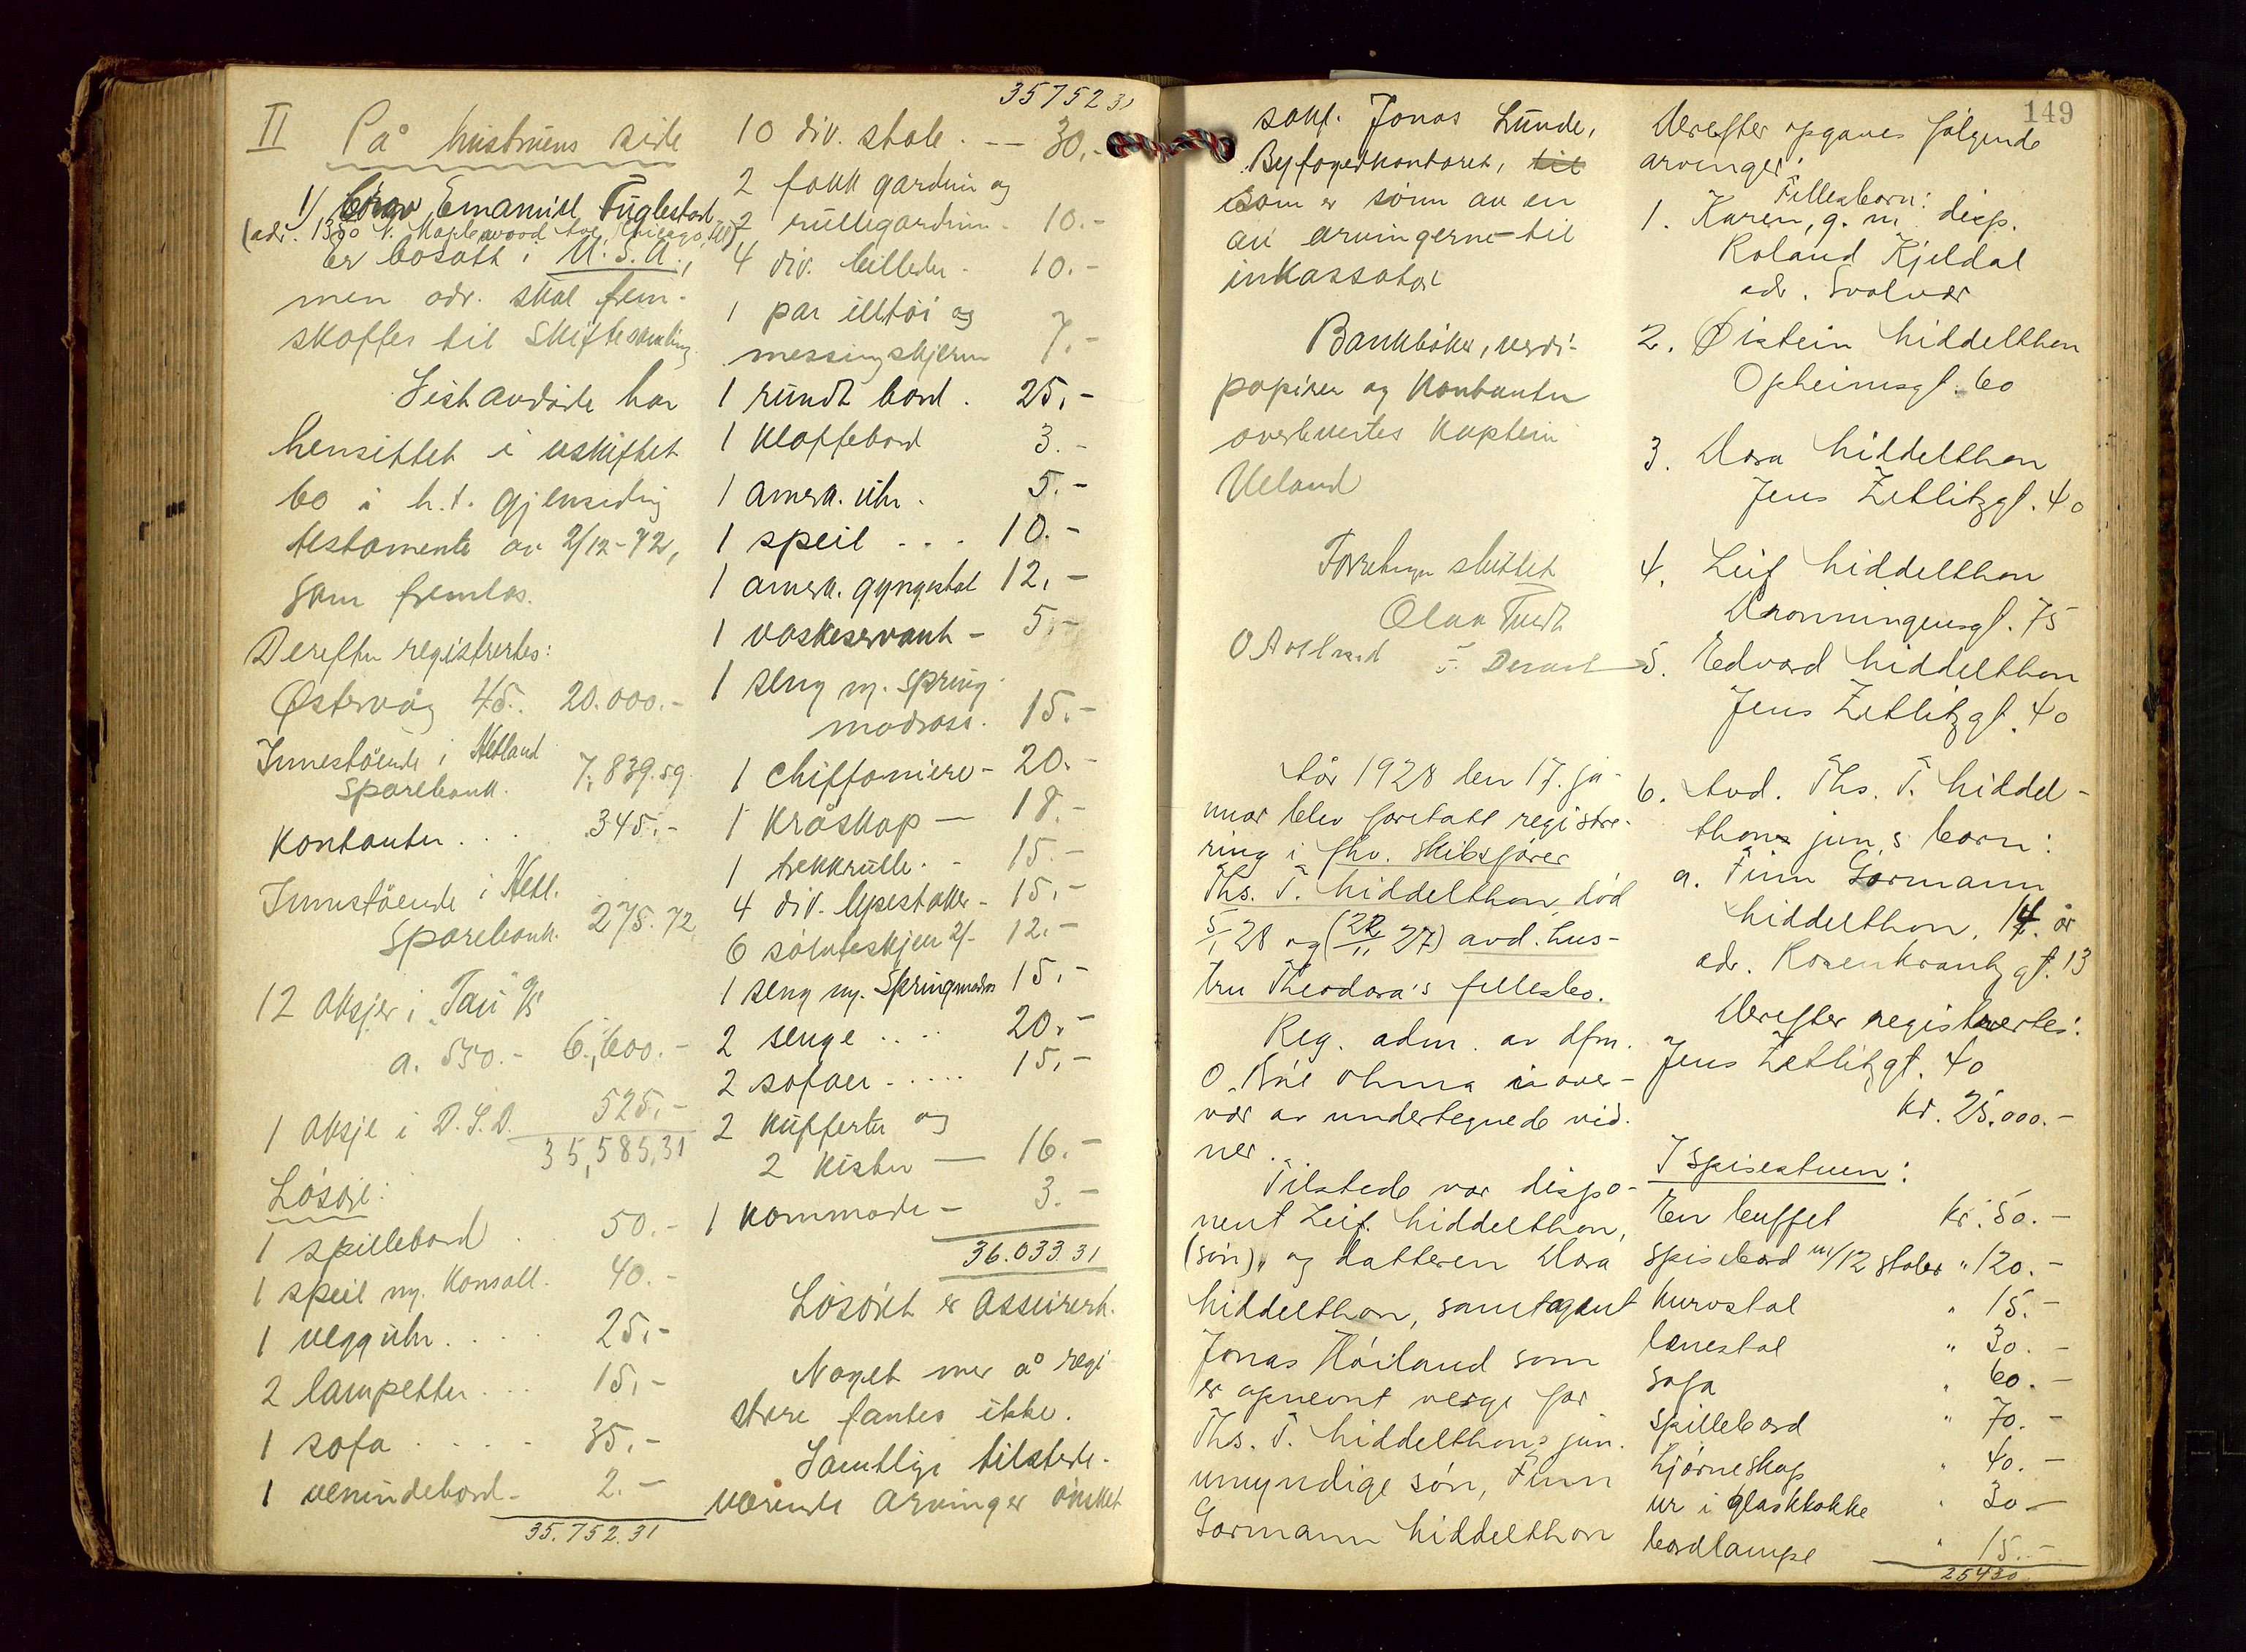 II På hustruens side
1) Emanuel Fuglestad
(adr. 1390 N. Maplewood Ave, Chicago, Ill)
er bosatt i U.S.A.,
men adr. skal frem-
skaffes til skiftesamling.
Sistavdøde har
hensittet i uskiftet
bo i h.t. gjensidig
testamente av 2/12-72,
som fremlas.
Derefter registrertes:
Østervåg 45. 20.000.-
Innestående i Hetland
Sparebank. 7.839.59
Kontanter . . 345.-
Innestående i Hetl.
Sparebank. 275.72
12 aksjer i "Tau" A/S
a. 550.- 6.600.-
1 aksje i D.S.D. 525.-
35,585,31
Løsøre:
1 spillebord . 50.-
1 speil m. konsoll. 40.-
1 vegguhr . . . . 25.-
2 lampetter . . . 15.-
1 sofa . . . . 35.-
1 venindebord - 2.-
35.752.31
35752 31
10 div. stole . -- 30.-
2 fakk gardiner og
2 rullegardiner . 10.-
4 div. billeder - 10.-
1 par illtøi og
messingskjerm 7.-
1 rundt bord . 25.-
1 klaffebord 3.-
1 amerk. uhr . 5.-
1 speil . . . 10.-
1 amerk. gyngestol 12.-
1 vaskeservant - 5.-
1 seng m. spring-
madrass. 15.-
1 chiffoniere - 20.-
1 kråskap - 18.-
1 trekkrulle . - 15.-
4 div. lysestaker - 15.-
6 sølvteskjeer 2/- 12.-
1 seng m. springmadras 15.-
2 senge . . . 20.-
2 sofaer . . . . . 15.-
2 kufferter og
2 kister - 16.-
1 kommode - 3.-
36.033.31
Løsøret er assurert.
Noget mer å regi
strere fantes ikke.
Samtlige tilstede-
værende arvinger ønsket
sakf. Jonas Lunde,
Byfogedkontoret, til
som er sønn av en
av arvingerne til
inkassator
Bankbøker, verdi-
papirer og kontanter
overleveres kaptein
Ueland
Forretningen sluttet
Olav Tvedt
149
År 1928 den 17. ja-
nuar blev foretatt registre-
ring i fhv. skibsfører
Ths. T. Middelthon, død
5/1 28 og (22/11 27) avd. hus-
tru Theodora's fellesbo.
Reg. adm. av dfm.
O. Bøe Ohma i over-
vær av undertegnede vid-
ner.
Tilstede var dispo-
nent Leif Middelthon,
(søn), og datteren Dora
Middelthon, samt agent
Jonas Høiland som
er opnevnt verge for
Ths. T. Middelthons jun.
umyndige søn, Finn
Gormann Middelthon
Derefter opgaves følgende
arvinger:
Fellesbarn:
1. Karen, g. m. disp.
Roland Kjeldal
adr. Svolvær
2. Øistein Middelthon
Opheimsgt. 60
3. Dora Middelthon
Jens Zetlitzgt. 40
4. Leif Middelthon
Dronningensgt. 75
5. Edvard Middelthon
Jens Zetlitzgt. 40
6. Avd. Ths. T. Middel-
thons jun.s barn:
a. Finn Gormann
Middelthon, 14 år
adr. Rosenkrantzgt. 13
Derefter registrertes:
Jens Zetlitzgt. 40
kr. 25.000.-
I spisestuen:
En buffet kr. 50.-
spisebord m/12 stoler " 120.-
kurvstol " 15.-
lenestol " 30.-
sofa " 60.-
spillebord " 70.-
hjørneskap " 40.-
ur i glasklokke " 30.-
bordlampe " 15.-
25430